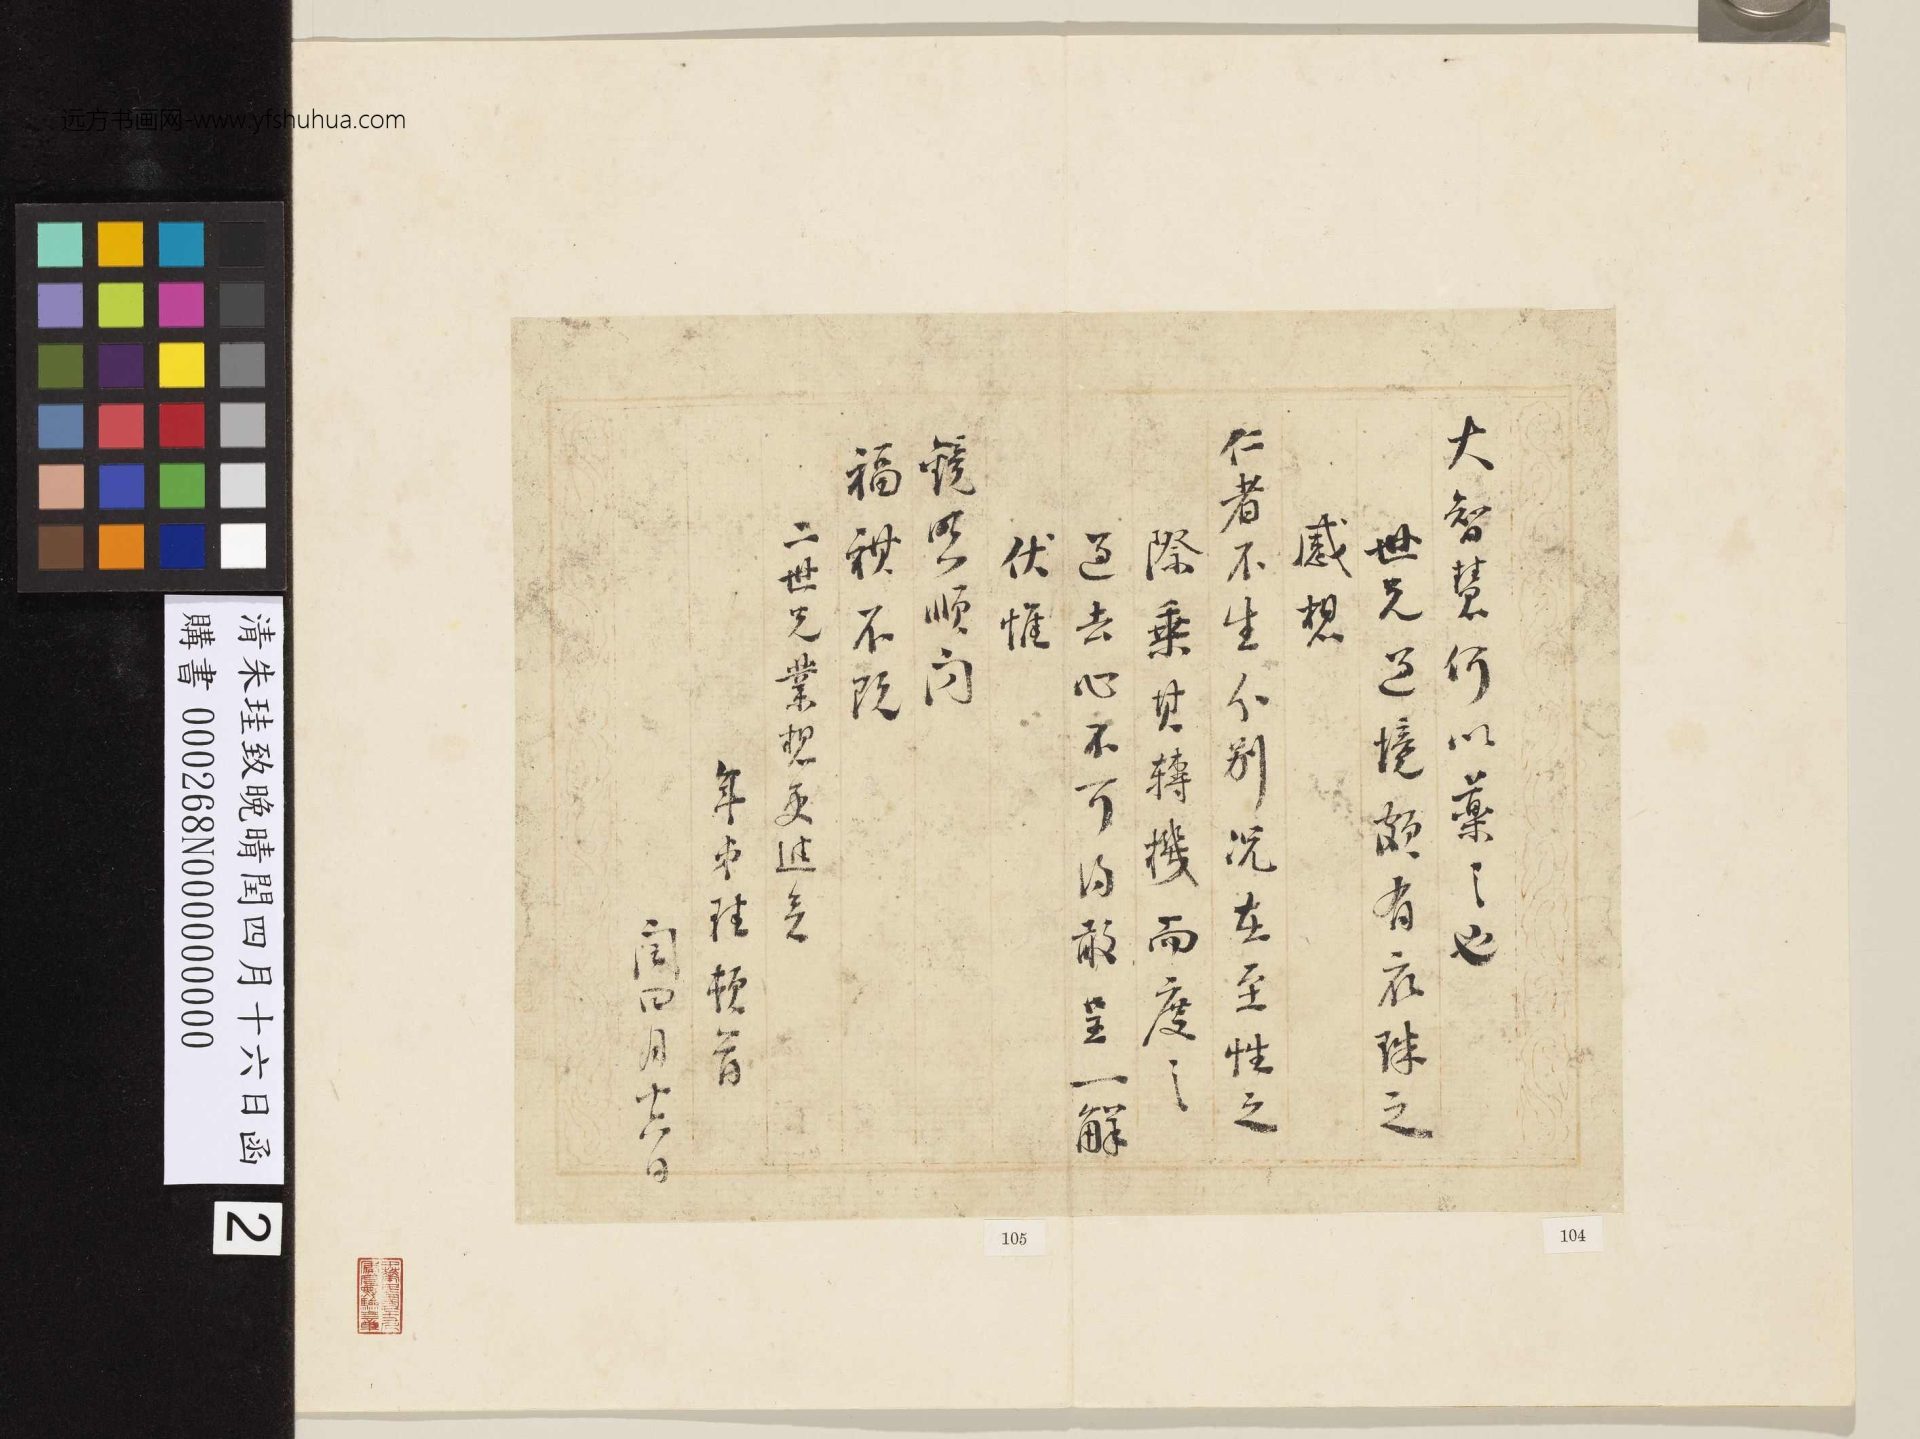 远方书画网-www.yfshuhua.com
大智慧何以藥之也
世兄過境頗有衣珠之
感想
仁者不生分别况在至性之
際乘其轉機而度之
過去心不可得敢呈一解
伏惟
鏡照順問
福祺不既
二世兄業想更進矣
年弟珪頓首
閏四月十六日
清朱珪致晚晴閏四月十六日函
購書 000268N000000000
2
105
104